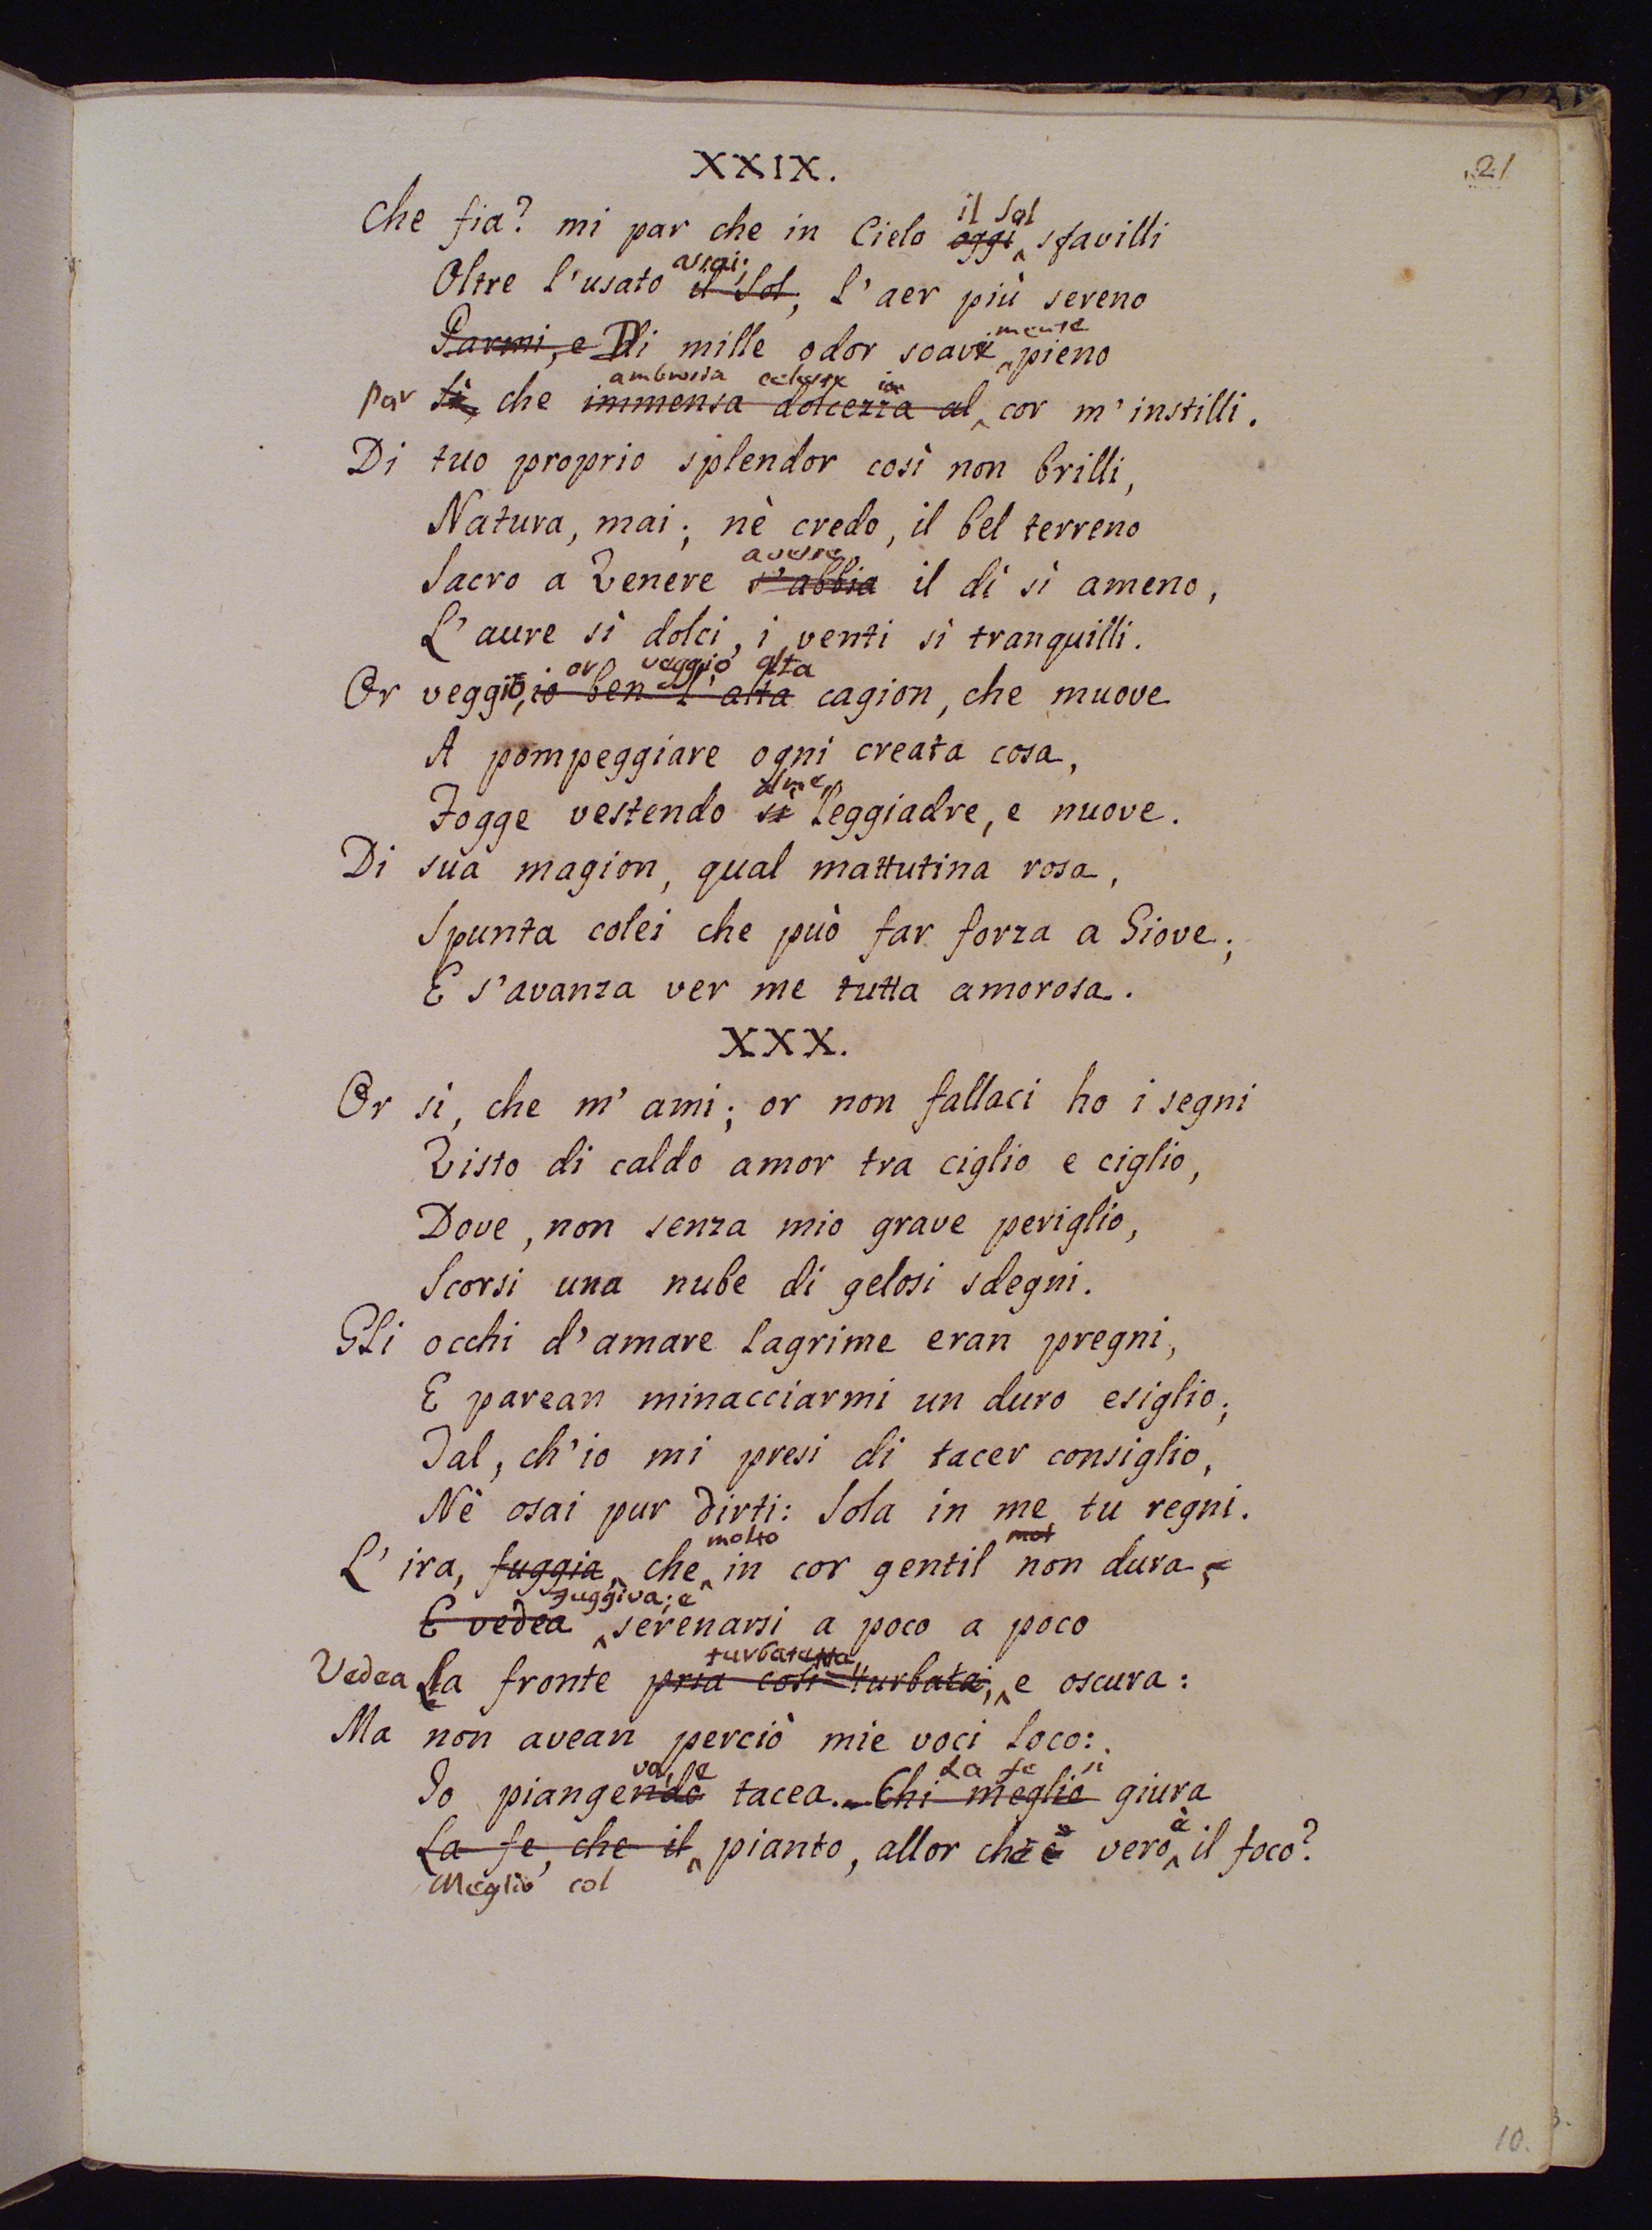 21
XXIX.
il Sol
Che fia? mi par che in Cielo oggi sfavilli
assai;
Oltre l'usato il Sol, l'aer più sereno
mente
Parmi, e Di mille odor soavi pieno
ambrosia celeste in
Par Sì, che immensa dolcezza al cor m'instilli.
Di tuo proprio splendor così non brilli,
Natura, mai; nè credo, il bel terreno
avesse
Sacro a Venere s'abbia il dì sì ameno,
L'aure sì dolci, i venti sì tranquilli.
or veggio, alta
Or veggio, io ben l'alta cagion, che muove
A pompeggiare ogni creata cosa,
alme,
Fogge vestendo sì leggiadre, e nuove.
Di sua magion, qual mattutina rosa,
Spunta colei che può far forza a Giove;
E s'avanza ver me tutta amorosa.
XXX.
Or sì, che m'ami; or non fallaci ho i segni
Visto di caldo amor tra ciglio e ciglio,
Dove, non senza mio grave periglio,
Scorsi una nube di gelosi sdegni.
Gli occhi d'amare lagrime eran pregni,
E parean minacciarmi un duro esiglio;
Tal, ch'io mi presi di tacer consiglio,
Nè osai pur dirti: Sola in me tu regni.
molto mol
L'ira, fuggia, che in cor gentil non dura,
fuggiva; e
E vedea serenarsi a poco a poco
turbatetta,
Vedea La fronte pria così turbata, e oscura:
Ma non avean perciò mie voci loco:
va, e La fe si
Io piangendo tacea. Chi meglio giura
è
La fe, che il pianto, allor che è vero il foco?
Meglio col
10.